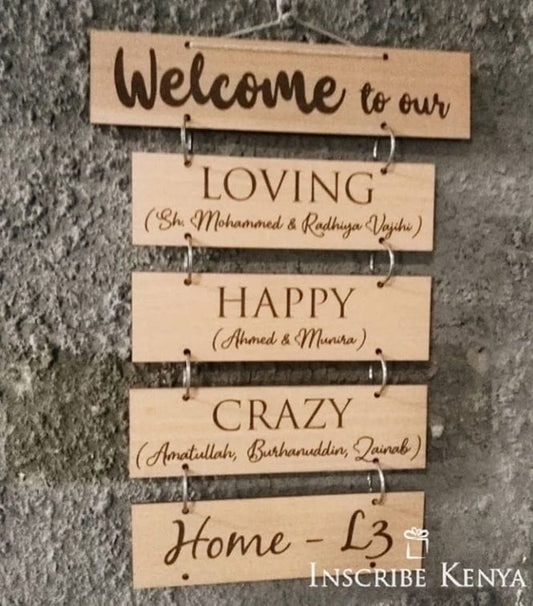 Welcome to our
LOVING
(Sh. Mohammed & Radhiya Vajihi)
HAPPY
(Ahmed & Munira)
CRAZY
(Amatullah, Burhanuddin, Zainab)
Home - L3
INSCRIBE KENYA